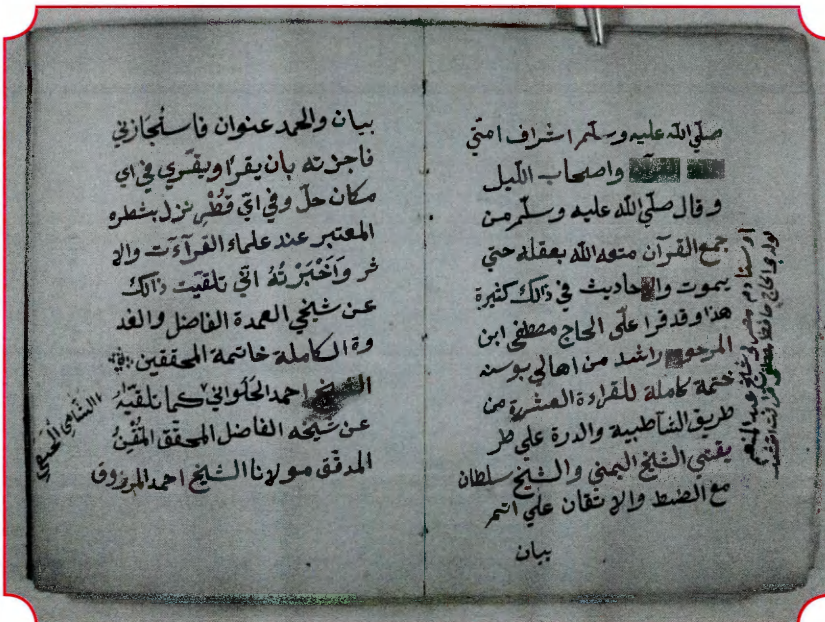 صلّي الله عليه وسلّم اشراف امتي
واصحاب اللّيل
وقال صلّي الله عليه وسلّم من
جمع القرآن متعه الله بعقله حتي
يموت والاحاديث في ذالك كثيرة
هذا وقد قرا علّي الحاج مصطفي ابن
المرحوم راشد من اهالي بوسنه
ختمة كاملة للقراءة العشرة من
طريق الشاطبية والدرة علي طر
يقتي الشيخ اليمني والشيخ سلطان
مع الضبط والاتقان علي اتم
بيان
بيان والحمد عنوان فاستجازني
فاجزته بان يقرا ويقري في اي
مكان حلّ وفي ايّ قُطْرٍ نزل بشطره
المعتبر عند علماء القراءَت والا
ثر وَاَخْبَرْتُهُ انّي تلقيت ذالك
عن شيخي العمدة الفاضل والقد
وة الكاملة خاتمة المحققين
الشيخ احمد الحَلواني كما تلقيّهُ
عن شيخه الفاضل المحقّق المُتْقِنُ
المدقّق مولانا الشيخ احمد المرزوق